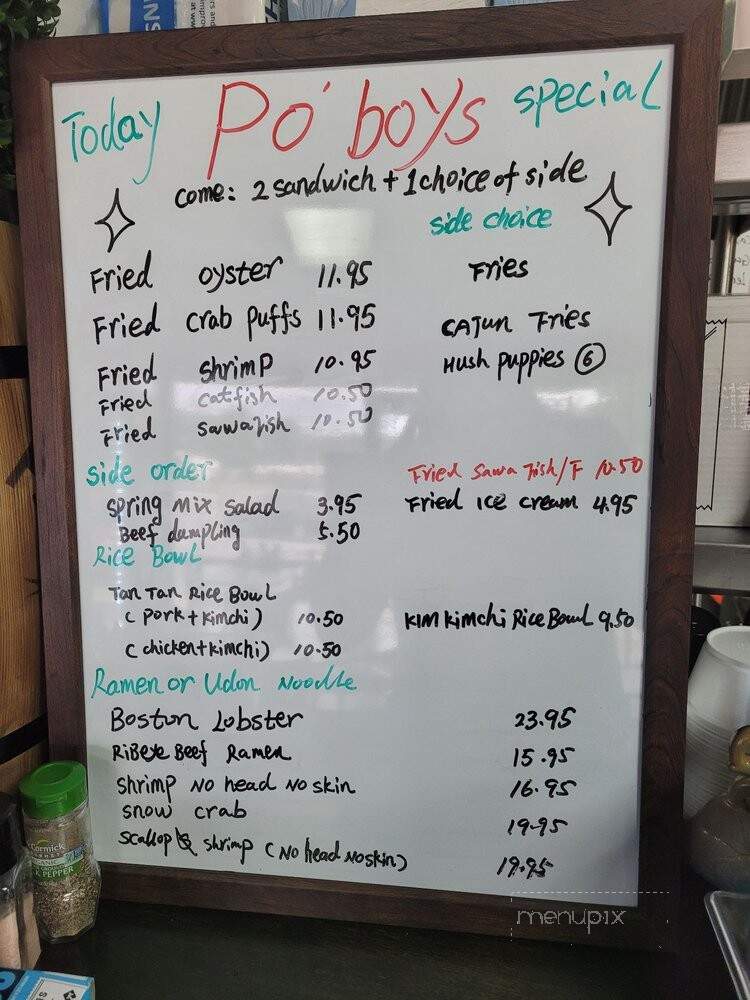 Today Po'boys special
come: 2 sandwich + 1 choice of side
side choice
Fried oyster 11.95 Fries
Fried crab puffs 11.95 CAJun Fries
Fried shrimp 10.95 Hush puppies 6
Fried catfish 10.50
Fried sawafish 10.50
side order Fried sawa fish/F 10.50
spring mix salad 3.95 Fried Ice cream 4.95
Beef dumpling 5.50
Rice Bowl
Tan Tan Rice Bowl
(pork+kimchi) 10.50 KIM kimchi Rice Bowl 9.50
(chicken+kimchi) 10.50
Ramen or Udon Noodle
Boston Lobster 23.95
RiBeye Beef Ramen 15.95
shrimp No head No skin 16.95
snow crab 19.95
scallop & shrimp (No head No skin) 19.95
menupix